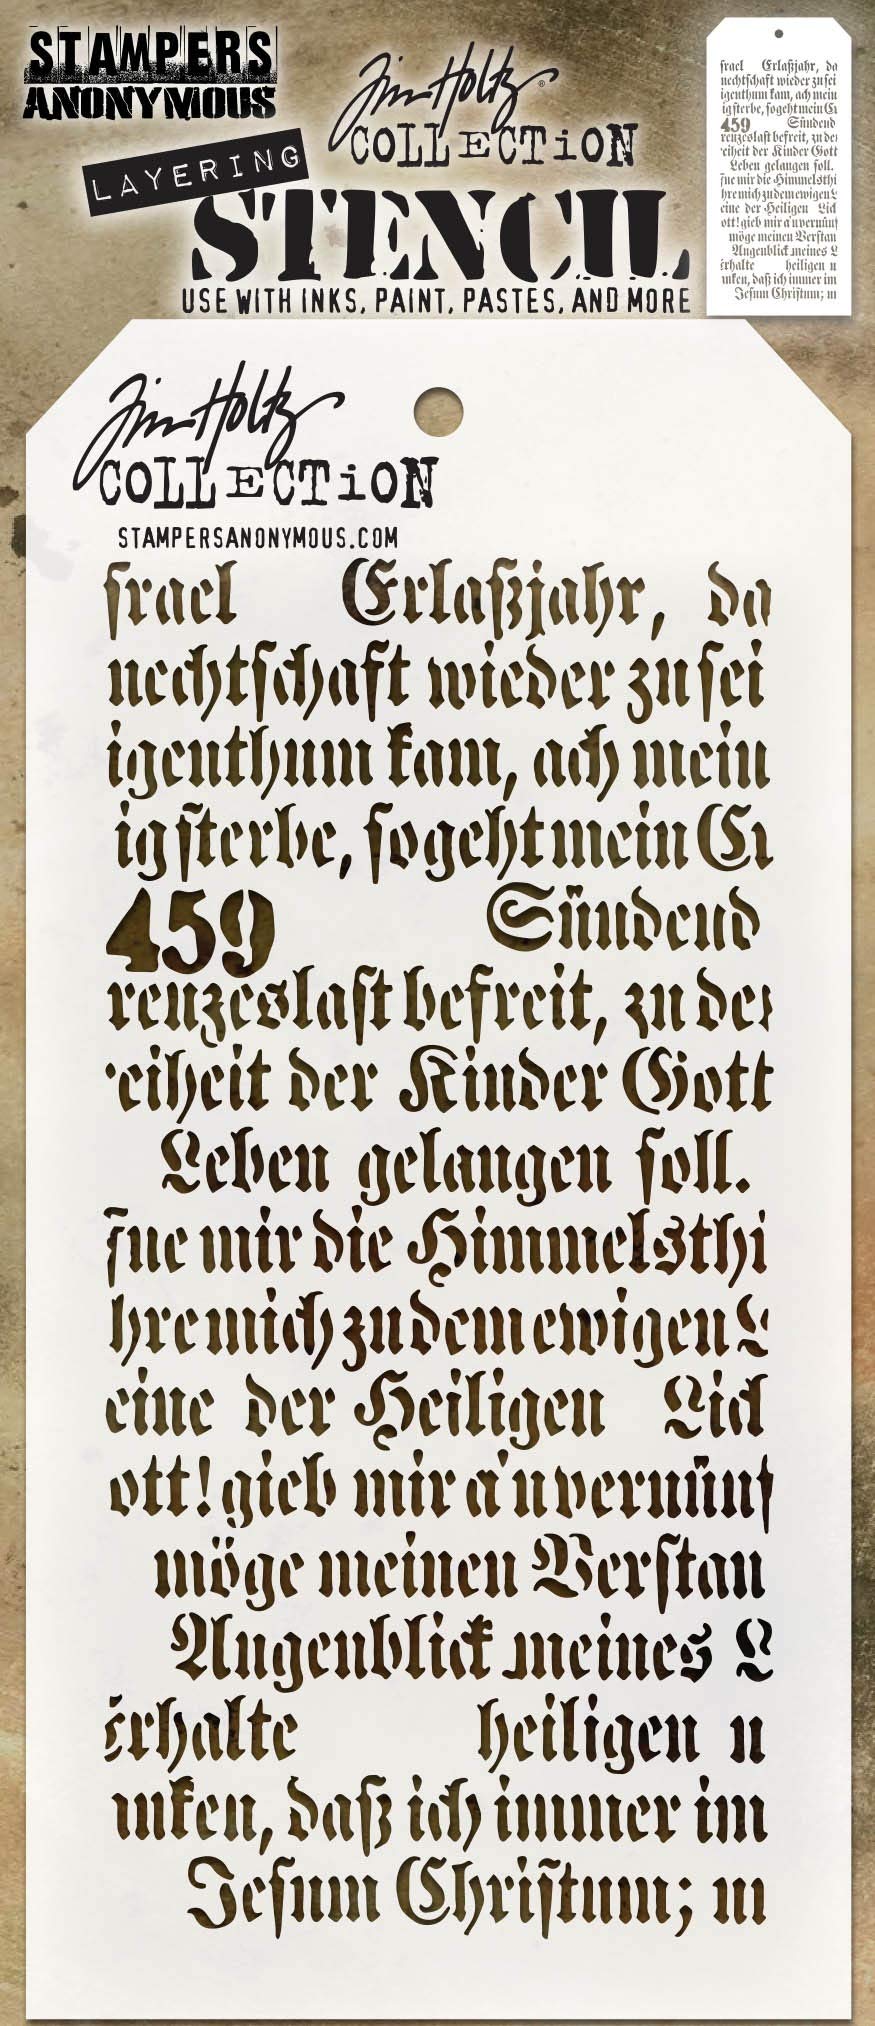 STAMPERS
ANONYMOUS
Tim Holtz®
COLLECTION
LAYERING
STENCIL
USE WITH INKS, PAINT, PASTES, AND MORE
ſrael Erlaßjahr, da
nechtſchaft wieder zu ſei
igenthum kam, ach mein
ig ſterbe, ſo geht mein Er
459 Sündend
reuzeslaſt befreit, zu der
eiheit der Kinder Gott
Leben gelangen ſoll.
ſne mir die Himmelsthi
hre mich zu dem ewigen L
eine der Heiligen Lid
ott! gieb mir a'nvernünf
möge meinen Verſtan
Augenblick meines L
Erhalte heiligen u
inken, daß ich immer im
Jeſum Chriſtum; m
Tim Holtz
COLLECTION
STAMPERSANONYMOUS.COM
ſrael Erlaßjahr, da
nechtſchaft wieder zu ſei
igenthum kam, ach mein
ig ſterbe, ſo geht mein Er
459 Sündend
reuzeslaſt befreit, zu der
eiheit der Kinder Gott
Leben gelangen ſoll.
ſne mir die Himmelsthi
hre mich zu dem ewigen L
eine der Heiligen Lid
ott! gieb mir a'nvernünf
möge meinen Verſtan
Augenblick meines L
Erhalte heiligen u
inken, daß ich immer im
Jeſum Chriſtum; m